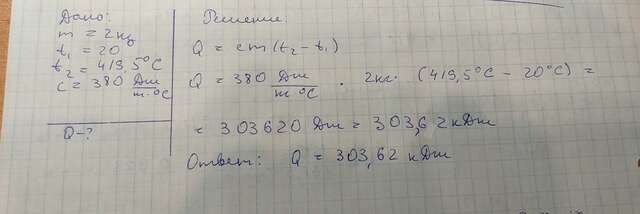 Дано:
m = 2кг
t₁ = 20°
t₂ = 419,5°C
c = 380 Дж/m·°C
Q-?
Решение:
Q = cm(t₂ - t₁)
Q = 380 Дж/m°C · 2кг · (419,5°C - 20°C) =
= 303620 Дж = 303,62 кДж
Ответ: Q = 303,62 кДж